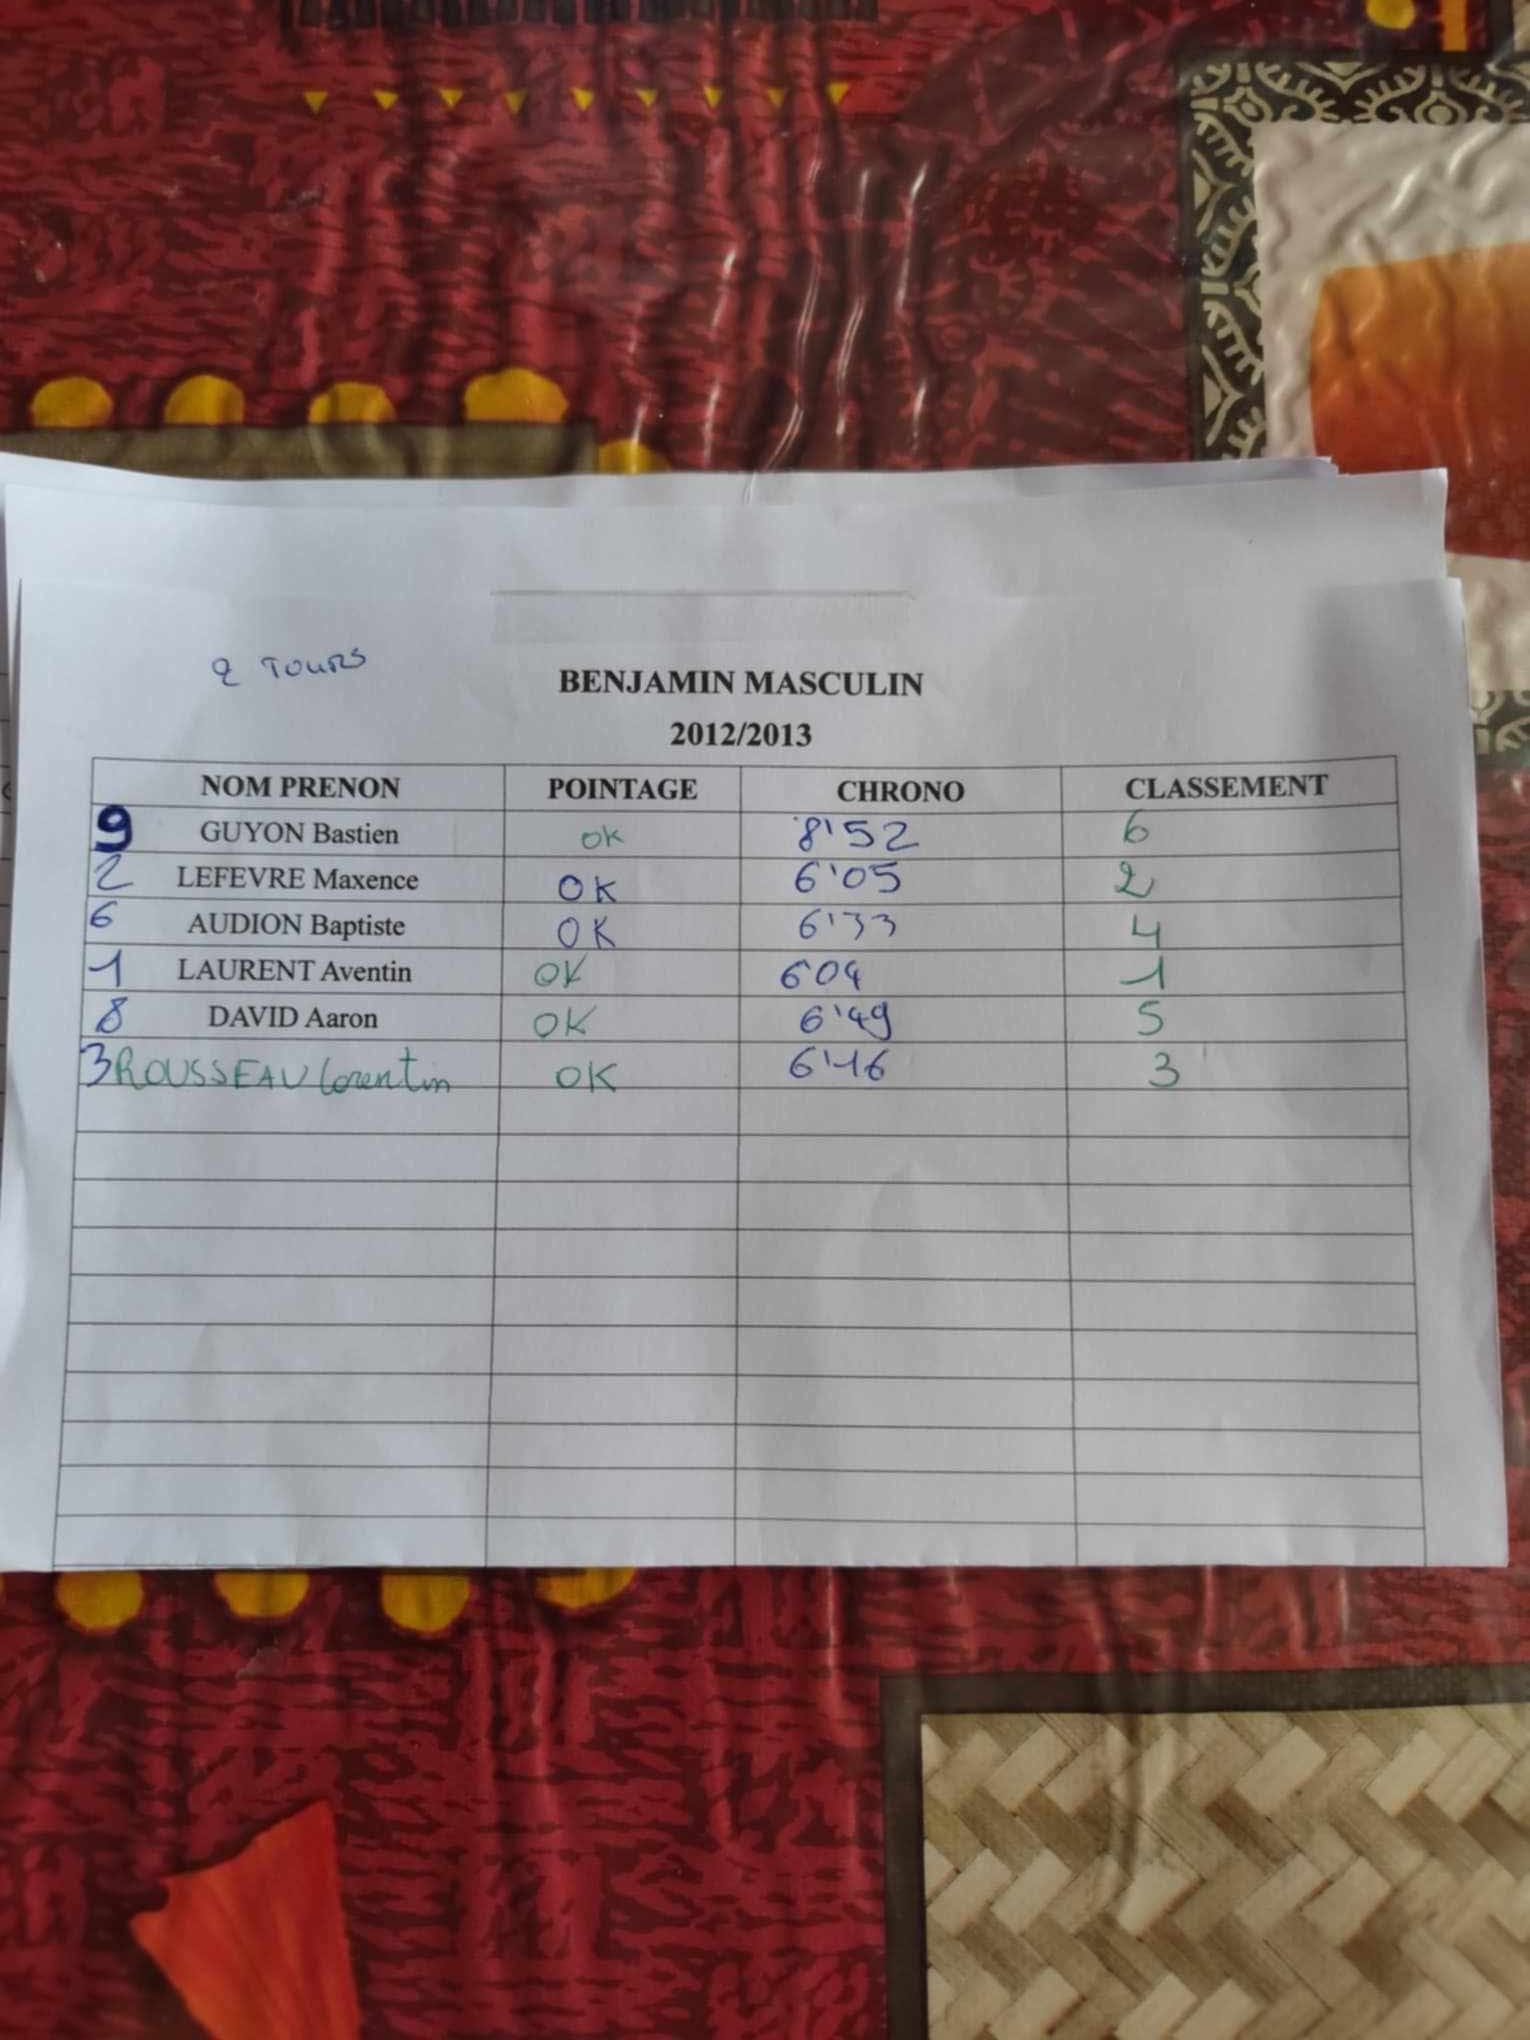 2 TOURS
BENJAMIN MASCULIN
2012/2013
NOM PRENON POINTAGE CHRONO CLASSEMENT
9 GUYON Bastien OK 8'52 6
2 LEFEVRE Maxence OK 6'05 2
6 AUDION Baptiste OK 6'33 4
1 LAURENT Aventin OK 604 1
8 DAVID Aaron OK 6'49 5
3 ROUSSEAU Corentin OK 6'16 3